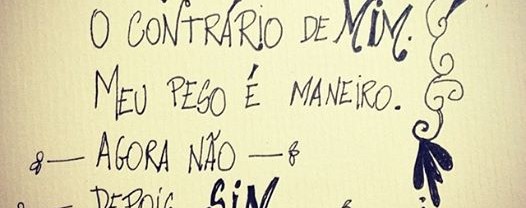 O CONTRÁRIO DE MIM.
MEU PESO É MANEIRO.
— AGORA NÃO —
DEPOIS SIM